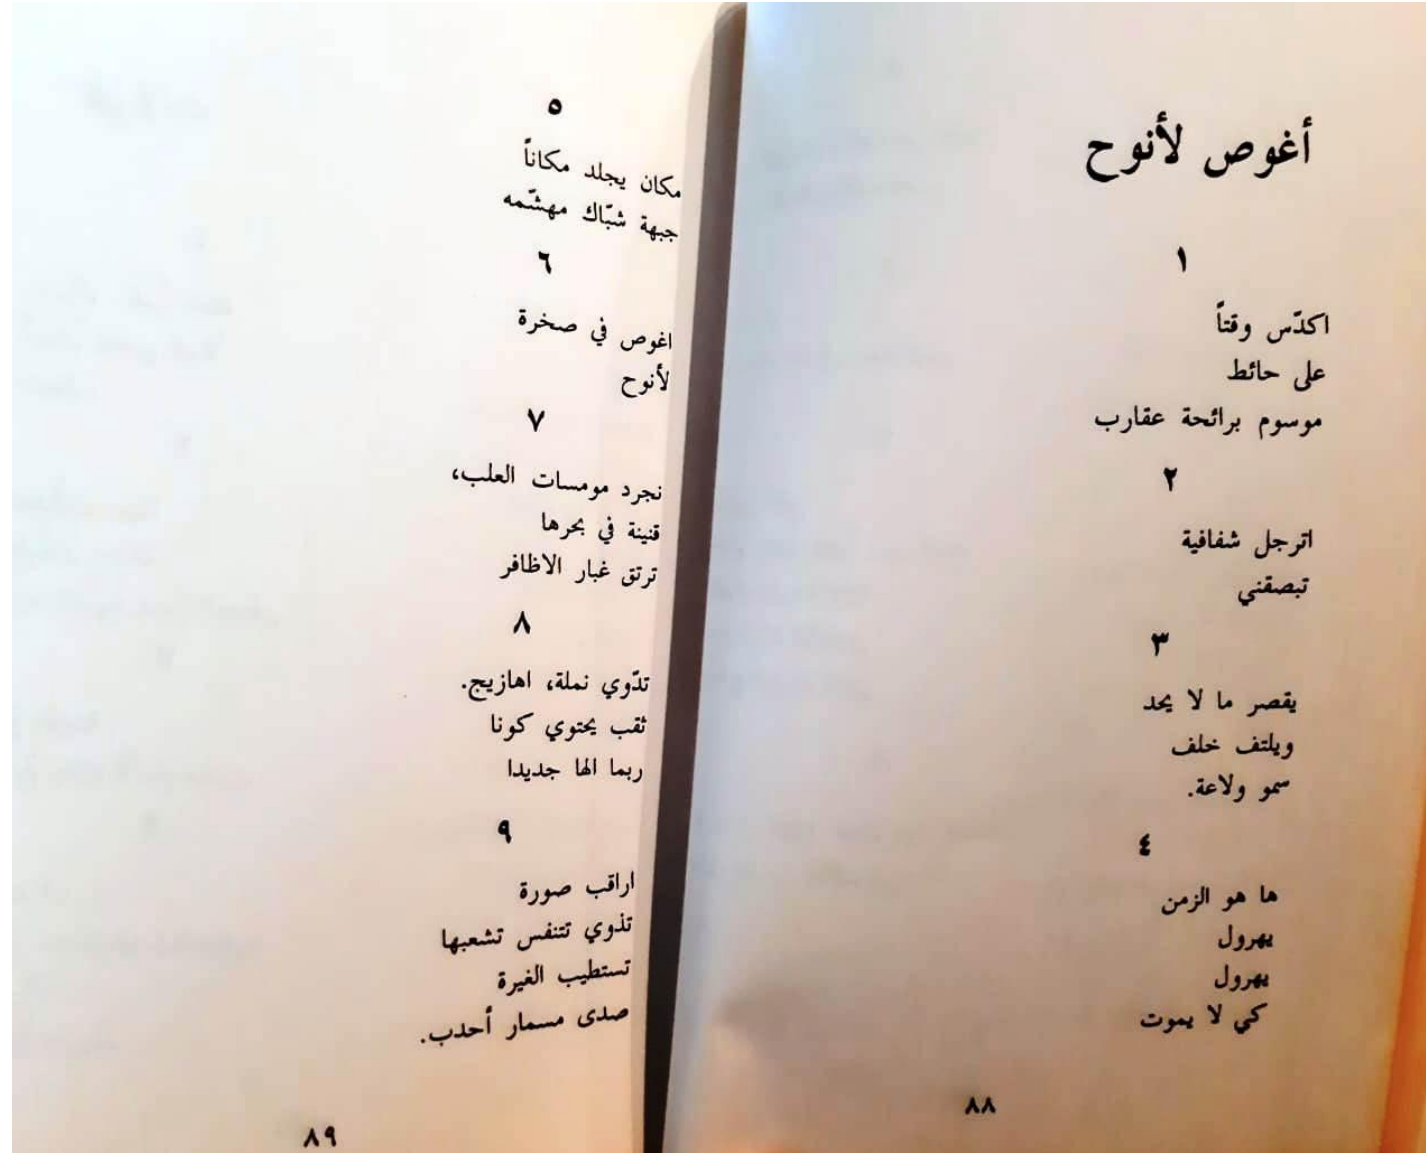 أغوص لأنوح
١
اكدّس وقتاً
على حائط
موسوم برائحة عقارب
٢
اترجل شفافية
تبصقني
٣
يقصر ما لا يحد
ويلتف خلف
سمو ولاعة.
٤
ها هو الزمن
يهرول
يهرول
كي لا يموت
٨٨
٥
مكان يجلد مكاناً
جبهة شبّاك مهشّمه
٦
اغوص في صخرة
لأنوح
٧
نجرد مومسات العلب،
قنينة في بحرها
ترتق غبار الاظافر
٨
تدّوي نملة، اهازيج.
ثقب يحتوي كونا
ربما الها جديدا
٩
اراقب صورة
تذوي تتنفس تشعبها
تستطيب الغيرة
صدى مسمار أحدب.
٨٩